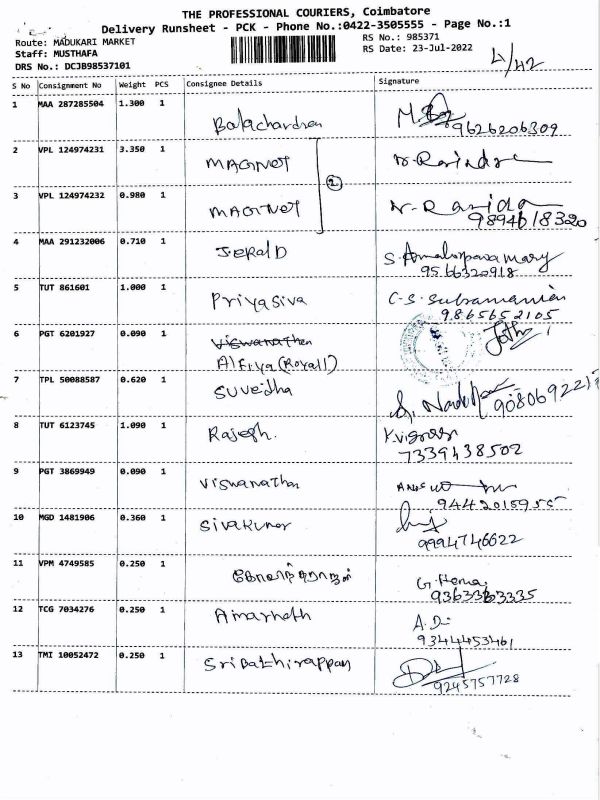 THE PROFESSIONAL COURIERS, Coimbatore
Delivery Runsheet - PCK - Phone No.:0422-3505555 - Page No.:1
Route: MADUKARI MARKET
RS No.: 985371
Staff: MUSTHAFA
RS Date: 23-Jul-2022
DRS No.: DCJB98537101
4/42
S No Consignment No Weight PCS Consignee Details Signature
1 MAA 287285504 1.300 1
Balachardran 9626206309
2 VPL 124974231 3.350 1
MAGNET N. Ravindra
2
3 VPL 124974232 0.980 1
MAGNET 9894618320
4 MAA 291232006 0.710 1
JERALD S. Amalorpava mary
9566320918
5 TUT 861601 1.000 1
Priyasiva C.S. Subramanian
9865652105
6 PGT 6201927 0.090 1
Viswanathan
Alfiya (Royall)
7 TPL 50088587 0.620 1
Suvedha
8 TUT 6123745 1.090 1
Rajesh. 7339438502
9 PGT 3869949 0.090 1
Viswanathan 9442015955
10 MGD 1481906 0.360 1
Sivakumar 9994746622
11 VPM 4749585 0.250 1
G. Hema
9363363335
12 TCG 7034276 0.250 1
Amarnath A.D
9344453461
13 TMI 10052472 0.250 1
Sribathirappan 9245757728